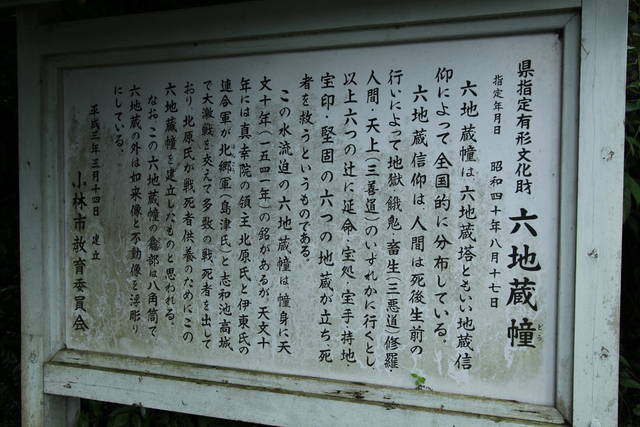 県指定有形文化財 六地蔵幢
どう
指定年月日 昭和四十年八月十七日
六地蔵幢は六地蔵塔ともいい地蔵信
仰によって全国的に分布している。
六地蔵信仰は、人間は死後生前の
行いによって地獄・餓鬼・畜生(三悪道)修羅・
人間・天上(三善道)のいずれかに行くとし
以上六つの辻に延命・宝処・宝手・持地・
宝印・堅固の六つの地蔵が立ち、死
者を救うというものである。
この水流迫の六地蔵幢は幢身に天
文十年(一五四一年)の銘があるが、天文十
年には真幸院の領主北原氏と伊東氏の
連合軍が北郷軍(島津氏)と志和池高城
で大激戦を交えて多数の戦死者を出して
おり、北原氏が戦死者供養のためにこの
六地蔵幢を建立したものと思われる。
なお、この六地蔵幢の龕部は八角筒で
六地蔵の外は如来像と不動像を浮彫り
にしている。
平成三年三月十四日 建立
小林市教育委員会